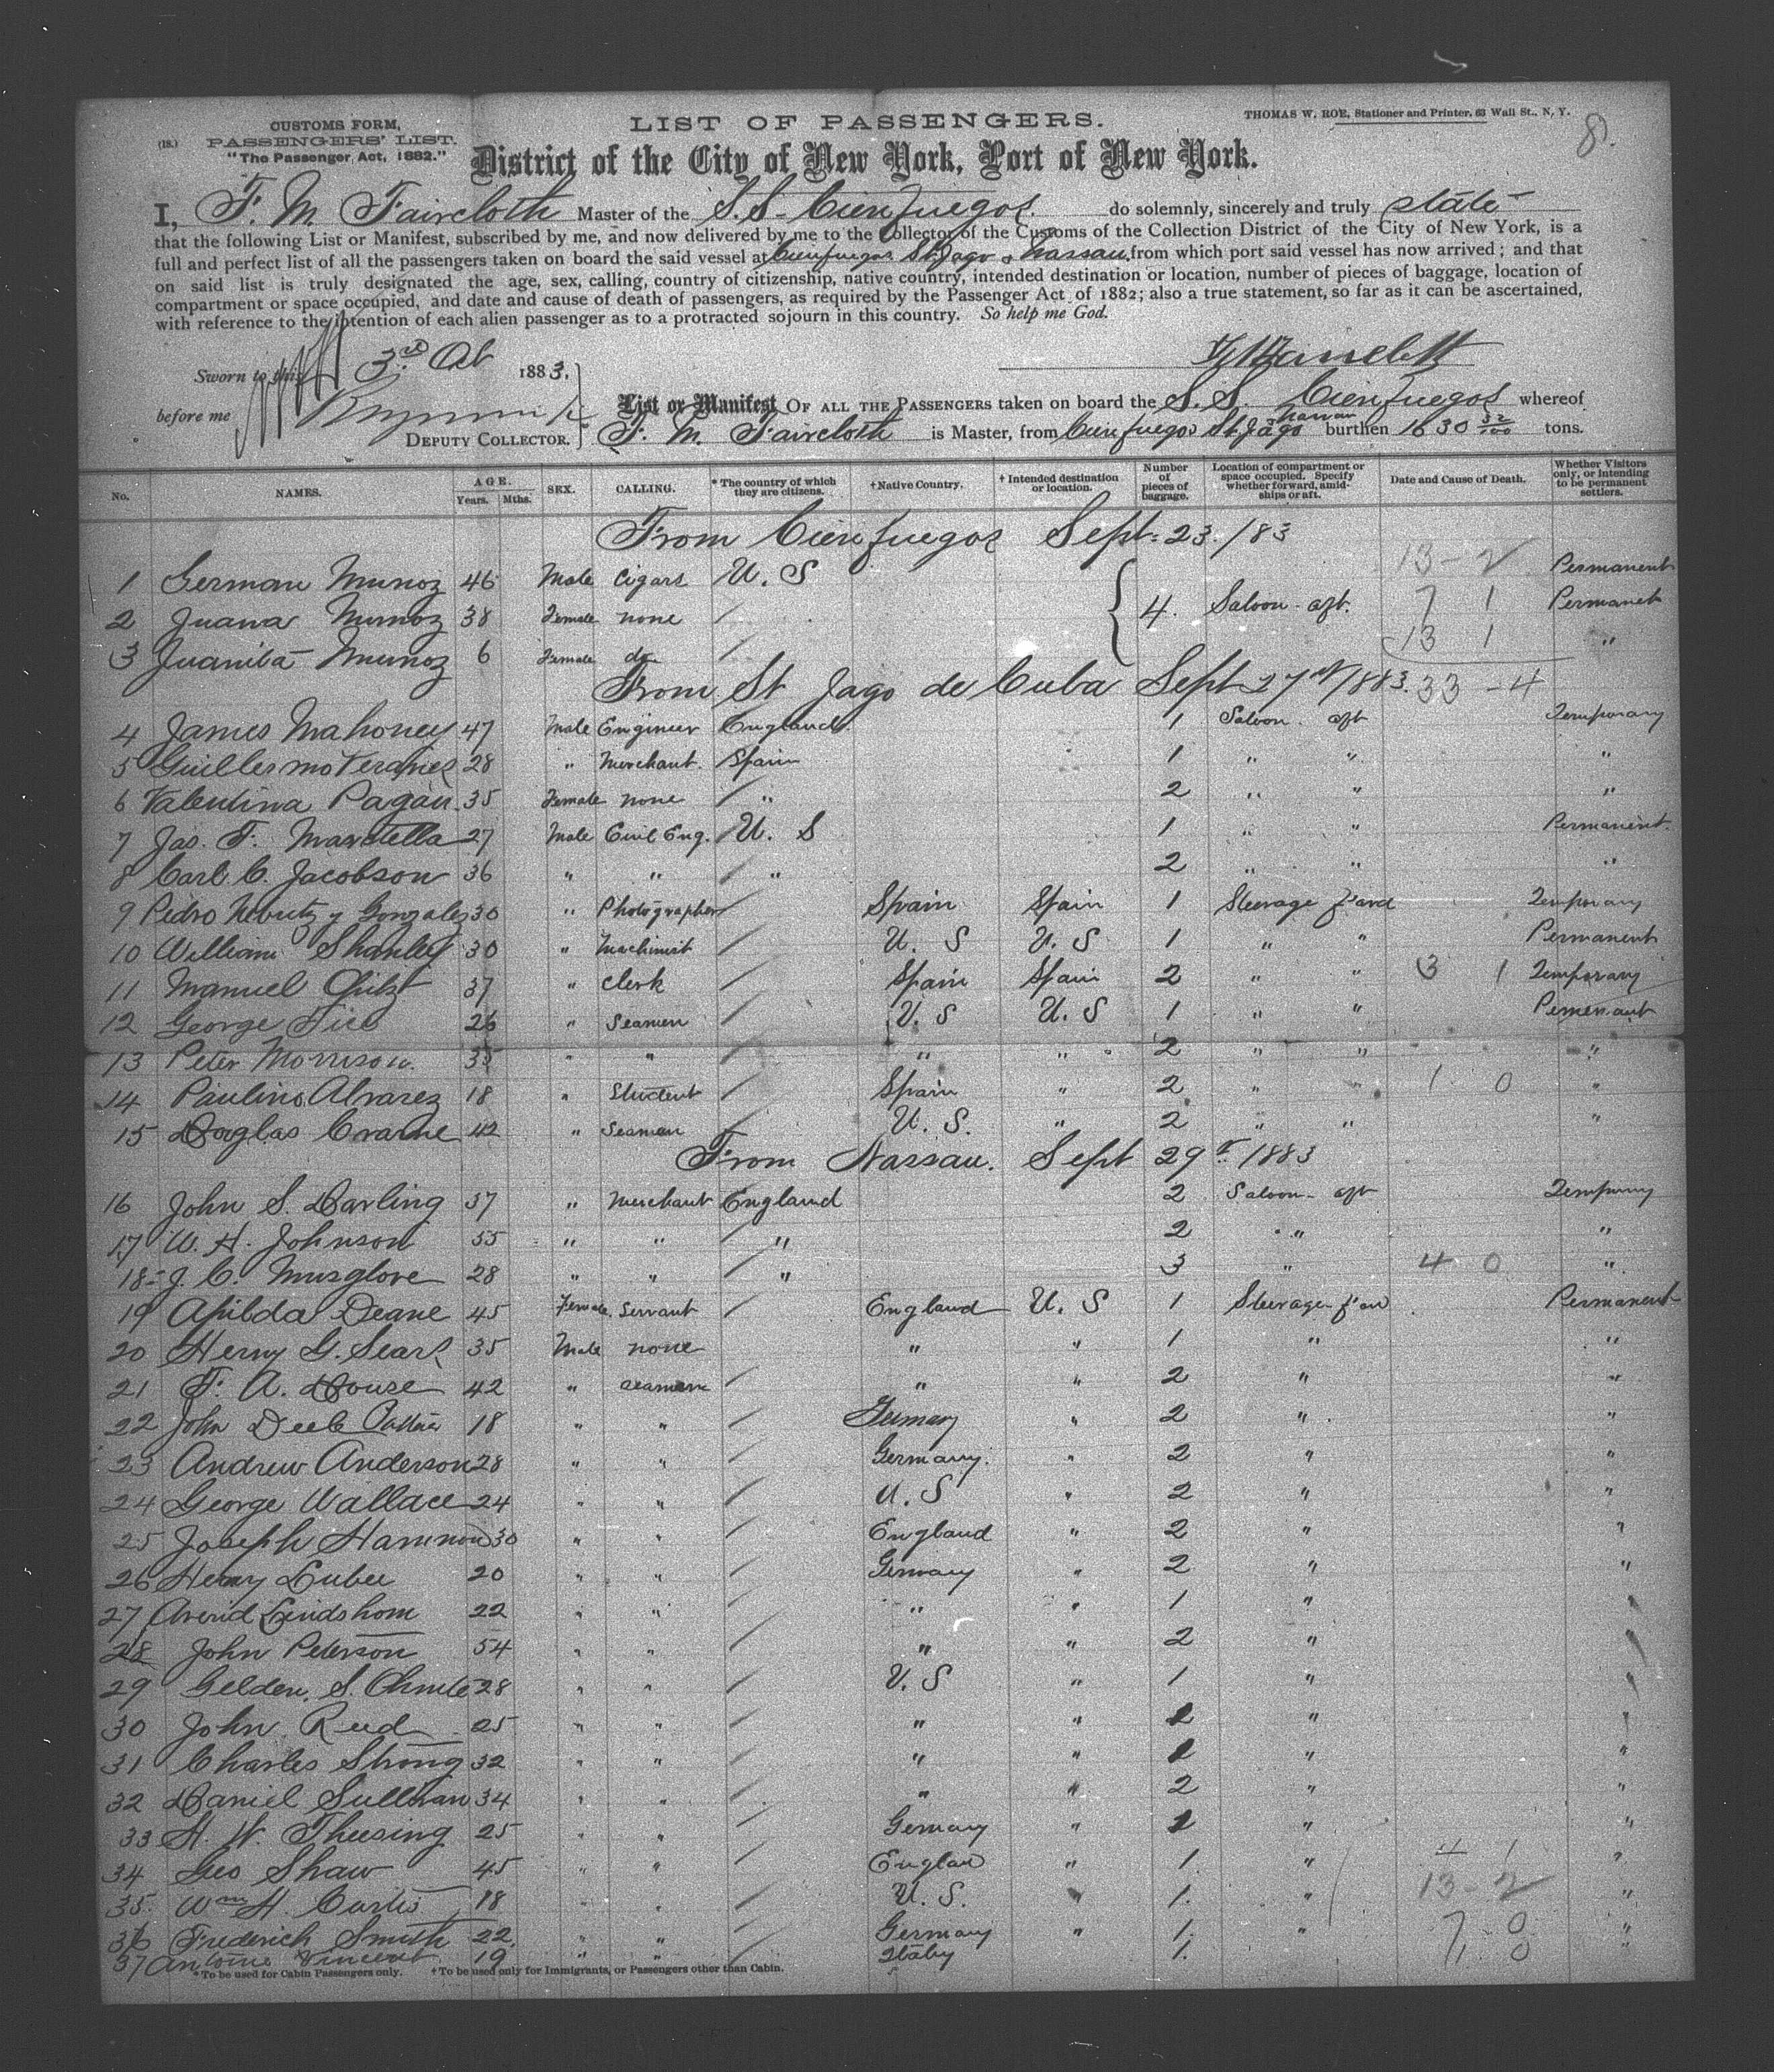 THOMAS W. ROE, Stationer and Printer, 63 Wall St., N. Y.
8).
CUSTOMS FORM,
(18.) PASSENGERS' LIST.
"The Passenger Act, 1882."
LIST OF PASSENGERS.
District of the City of New York, Port of New York.
I, F. M. Faircloth Master of the S.S. Cienfuegos. do solemnly, sincerely and truly state
that the following List or Manifest, subscribed by me, and now delivered by me to the Collector of the Customs of the Collection District of the City of New York, is a
full and perfect list of all the passengers taken on board the said vessel at Cienfuegos St. Jago & Nassau. from which port said vessel has now arrived; and that
on said list is truly designated the age, sex, calling, country of citizenship, native country, intended destination or location, number of pieces of baggage, location of
compartment or space occupied, and date and cause of death of passengers, as required by the Passenger Act of 1882; also a true statement, so far as it can be ascertained,
with reference to the intention of each alien passenger as to a protracted sojourn in this country. So help me God.
Sworn to this 3rd Oct 1883.
before me
DEPUTY COLLECTOR.
List or Manifest OF ALL THE PASSENGERS taken on board the S.S. Cienfuegos whereof
F. M. Faircloth is Master, from Cienfuegos St. Jago Nassau burthen 1630 32/100 tons.
No. NAMES. AGE. Years. Mths. SEX. CALLING. * The country of which they are citizens. † Native Country. † Intended destination or location. Number of pieces of baggage. Location of compartment or space occupied. Specify whether forward, amidships or aft. Date and Cause of Death. Whether Visitors only, or intending to be permanent settlers.
From Cienfuegos Sept. 23. /83
1 German Munoz 46 Male Cigars U. S 13 - 2 Permanent
2 Juana Munoz 38 Female none / 4. Saloon - aft. 7 1 Permanet
3 Juanita Munoz 6 Female do / 13 1 "
From St Jago de Cuba Sept 27th /1883. 33 - 4
4 James Mahoney 47 Male Engineer England 1 Saloon - aft Temporary
5 Guillermo 28 " Merchant. Spain 1 " " "
6 Valentina Pagan. 35 Female none / " 2 " " "
7 Jas. F. Mardtella 27 Male Civil Eng. U. S 1 " " Permanent.
8 Carl C. Jacobson 36 " " / " 2 " " "
9 Pedro y Gonzales 30 " Photographer / Spain Spain 1 Steerage f'ard Temporary
10 William Shanley 30 " Machinist / U. S U. S 1 " " Permanent
11 Manuel 37 " Clerk / Spain Spain 2 " " 3 1 Temporary
12 George Tice 26 " Seamen / U. S U. S 1 " " Permenant
13 Peter Morrison. 35 " " / " " 2 " " "
14 Paulino Alvarez 18 " Student / Spain " 2 " " 1 0 "
15 Douglas Crame 42 " Seamen / U. S. " 2 " " "
From Nassau. Sept 29th 1883
16 John S. Darling 37 " Merchant England 2 Saloon - aft Tempuary
17 W. H. Johnson 55 " " / " 2 " " "
18 J. C. Musglove 28 " " / " 3 " 4 0 "
19 Apilda Deane 45 Female. Servant / England U. S 1 Steerage f'ar Permanent
20 Henry G. Searl 35 Male none " " 1 " "
21 F. A. Douse 42 " seamen / " " 2 " "
22 John Deeb 18 " " / Gemany " 2 " "
23 Andrew Anderson 28 " " / Germany. " 2 " "
24 George Wallace 24 " " / U. S " 2 " "
25 Joseph Hammon 30 " " / England " 2 " "
26 Henry Lubee 20 " " / Germany " 2 " "
27 Arvid Lindshom 22 " " / " " 1 " "
28 John Peterson 54 " " / " " 2 " "
29 Gelden. S. 28 " " / U. S " 1 " "
30 John Reed 25 " " / " " 2 " "
31 Charles Strong 32 " " / " " 1 " "
32 Daniel Sullivan 34 " " / " " 2 " "
33 H. W. Theesing 25 " " / Gemany " 1 " "
34 Geo Shaw 45 " " / Englan " 1. " 4 1 "
35. Wm H. Curtis 18 " " / U. S. " 1. " 13 - 2 "
36 Frederick Smith 22. " " / Germany " 1. " 7 0 "
37 Antoine Vincent 19 " " / Italy 1. 7. 0
* To be used for Cabin Passengers only. † To be used only for Immigrants, or Passengers other than Cabin.